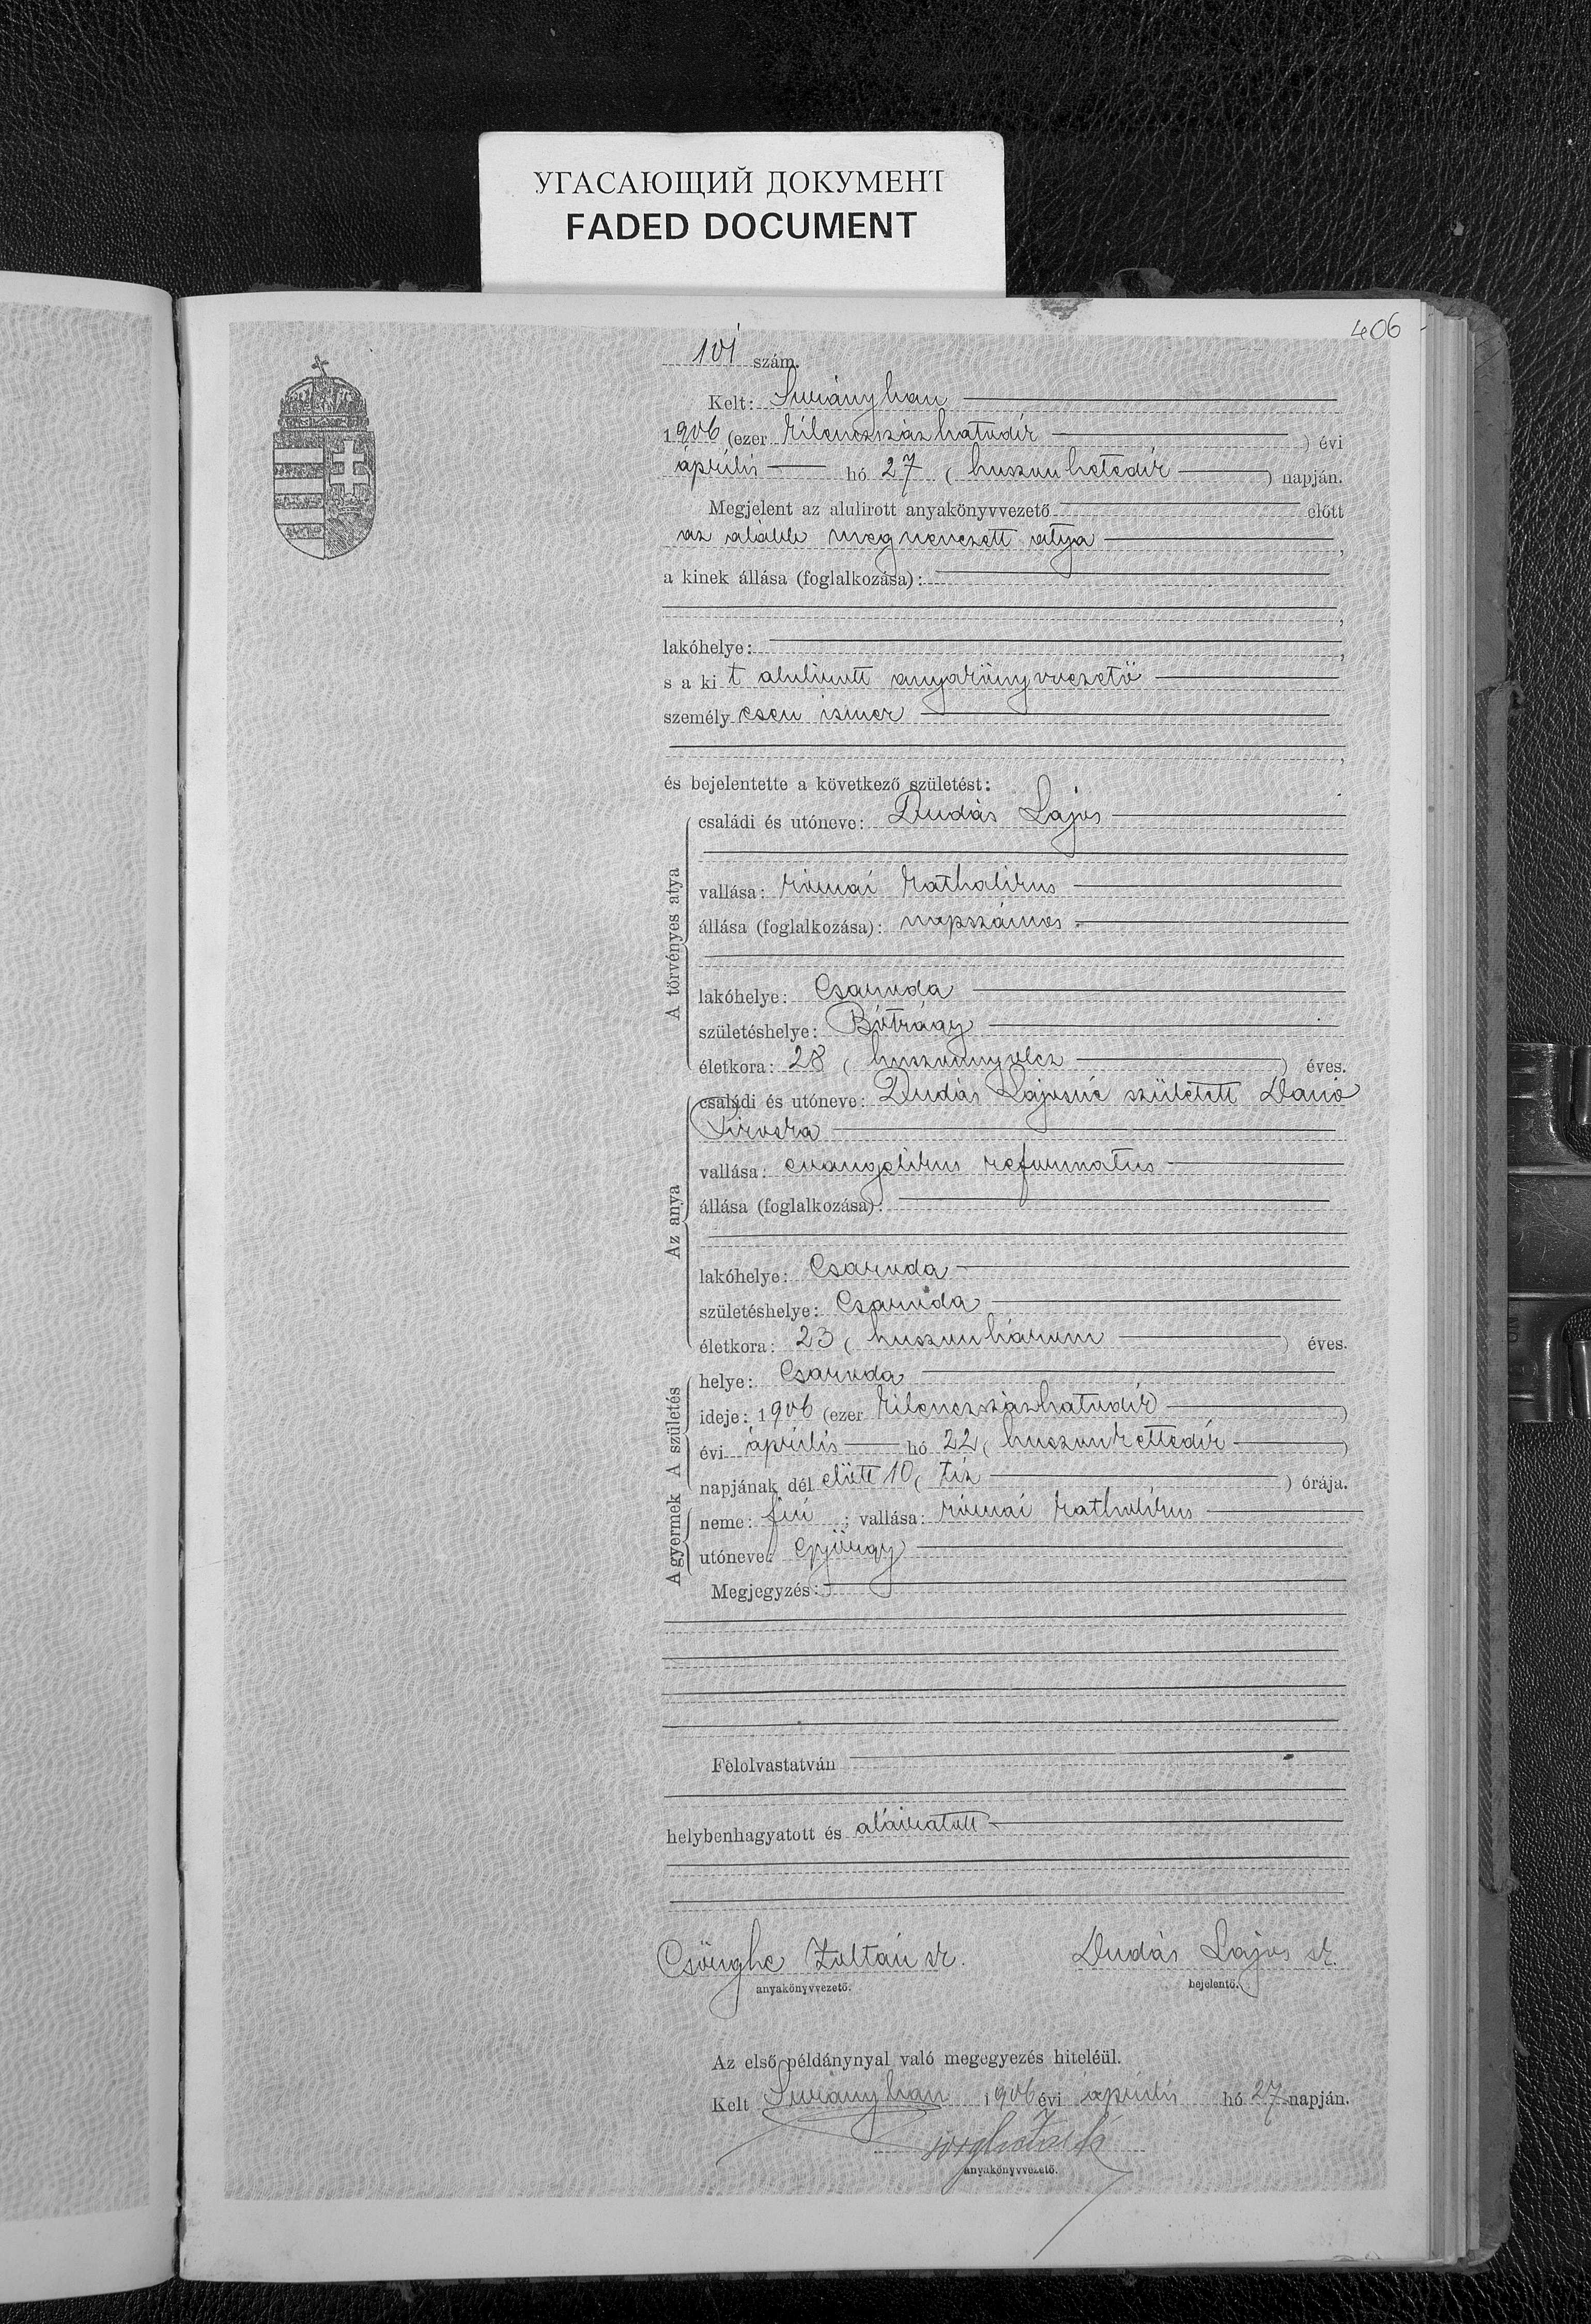 УГАСАЮЩИЙ ДОКУМЕНТ
FADED DOCUMENT
406
101 szám.
Kelt: Surányban
1906 (ezer kilenczszázhatodik ) évi
április hó 27 ( huszonhetedik ) napján.
Megjelent az alulirott anyakönyvvezető előtt
az alább megnevezett atya ,
a kinek állása (foglalkozása):
,
lakóhelye: ,
s a kit alulirott anyakönyvvezető
személyesen ismer
,
és bejelentette a következő születést:
A törvényes atya
családi és utóneve: Dudás Lajos
vallása: római katholikus
állása (foglalkozása): napszámos
lakóhelye: Csaroda
születéshelye: Bótrágy
életkora: 28 ( huszonnyolcz ) éves.
Az anya
családi és utóneve: Dudás Lajosné született Danó
Piroska
vallása: evangelikus reformatus
állása (foglalkozása):
lakóhelye: Csaroda
születéshelye: Csaroda
életkora: 23 ( huszonhárom ) éves.
A születés
helye: Csaroda
ideje: 1906 (ezer kilenczszázhatodik )
évi április hó 22 ( huszonkettedik )
napjának dél előtt 10 ( tiz ) órája.
A gyermek
neme: fiú ; vallása: római katholikus
utóneve: György
Megjegyzés:
Felolvastatván
helybenhagyatott és aláiratott
Csörghe Zoltán sk. Dudás Lajos sk.
anyakönyvvezető. bejelentő.
Az első példánynyal való megegyezés hiteléül.
Kelt Surányban 1906 évi április hó 27 napján.
anyakönyvvezető.